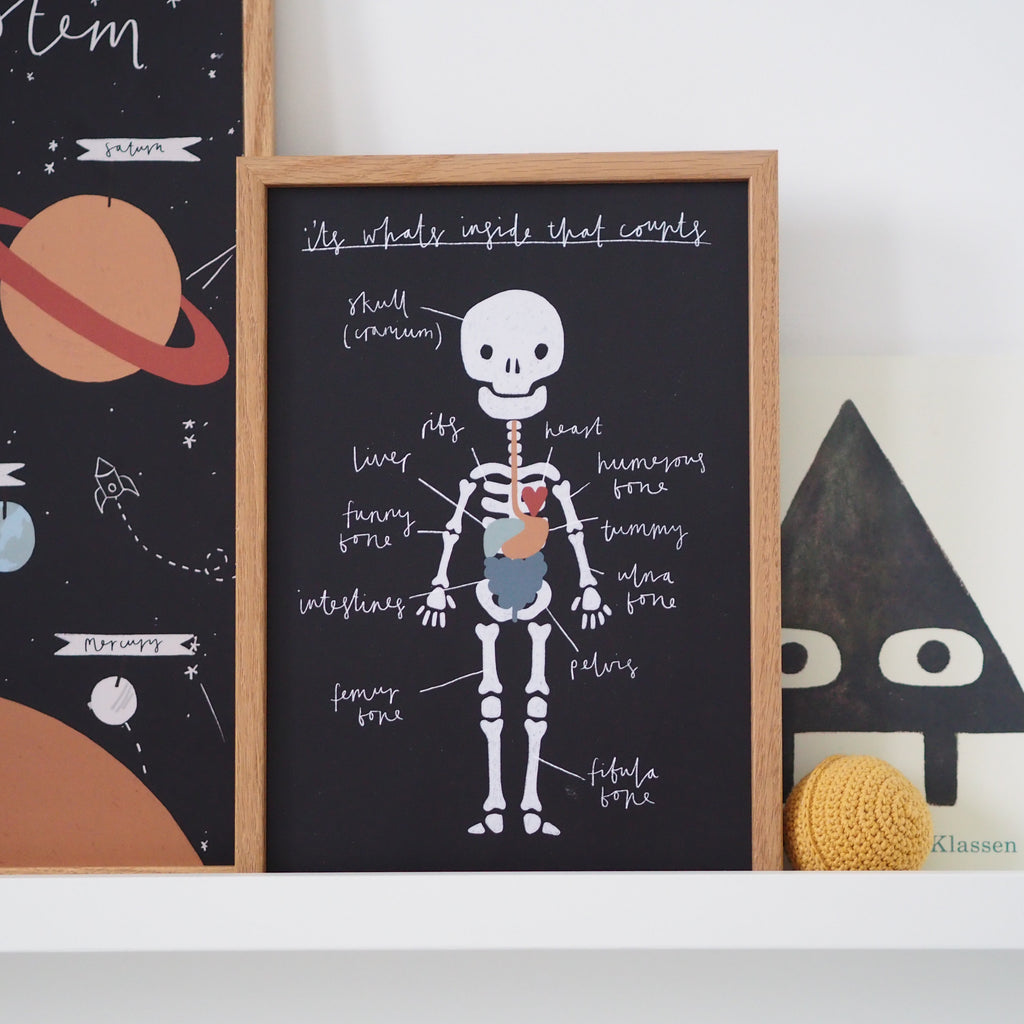 stem
saturn
mercury
its whats inside that counts
skull
(cranium)
ribs
heart
liver
humerous
bone
funny
bone
tummy
intestines
ulna
bone
pelvis
femur
bone
fibula
bone
Klassen